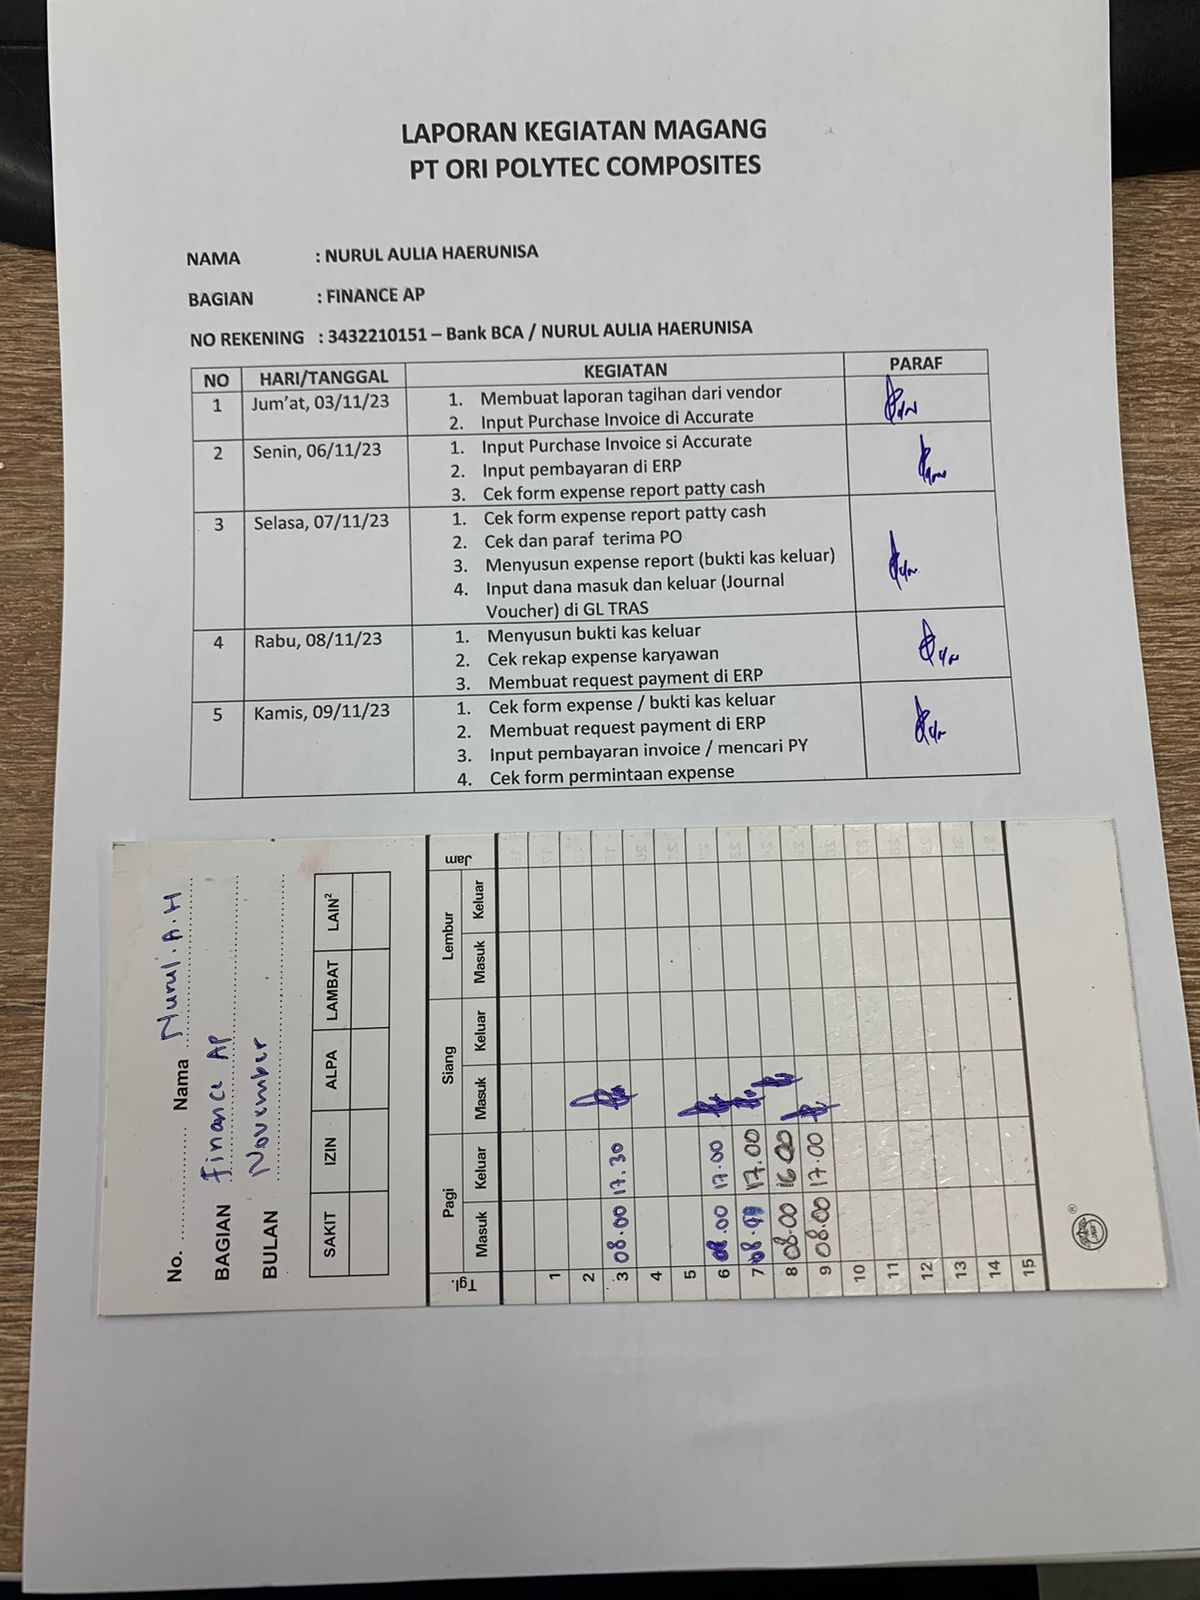 LAPORAN KEGIATAN MAGANG
PT ORI POLYTEC COMPOSITES
NAMA : NURUL AULIA HAERUNISA
BAGIAN : FINANCE AP
NO REKENING : 3432210151 – Bank BCA / NURUL AULIA HAERUNISA
NO HARI/TANGGAL KEGIATAN PARAF
1 Jum'at, 03/11/23 1. Membuat laporan tagihan dari vendor
2. Input Purchase Invoice di Accurate
2 Senin, 06/11/23 1. Input Purchase Invoice si Accurate
2. Input pembayaran di ERP
3. Cek form expense report patty cash
3 Selasa, 07/11/23 1. Cek form expense report patty cash
2. Cek dan paraf terima PO
3. Menyusun expense report (bukti kas keluar)
4. Input dana masuk dan keluar (Journal
Voucher) di GL TRAS
4 Rabu, 08/11/23 1. Menyusun bukti kas keluar
2. Cek rekap expense karyawan
3. Membuat request payment di ERP
5 Kamis, 09/11/23 1. Cek form expense / bukti kas keluar
2. Membuat request payment di ERP
3. Input pembayaran invoice / mencari PY
4. Cek form permintaan expense
No. .............. Nama Nurul . A . H
BAGIAN Finance AP
BULAN November
SAKIT IZIN ALPA LAMBAT LAIN²
Tgl. Pagi Siang Lembur Jam
Masuk Keluar Masuk Keluar Masuk Keluar
1
2
3 08.00 17.30
4
5
6 08.00 17.00
7 17.00
8 08.00 16.00
9 08.00 17.00
10
11
12
13
14
15